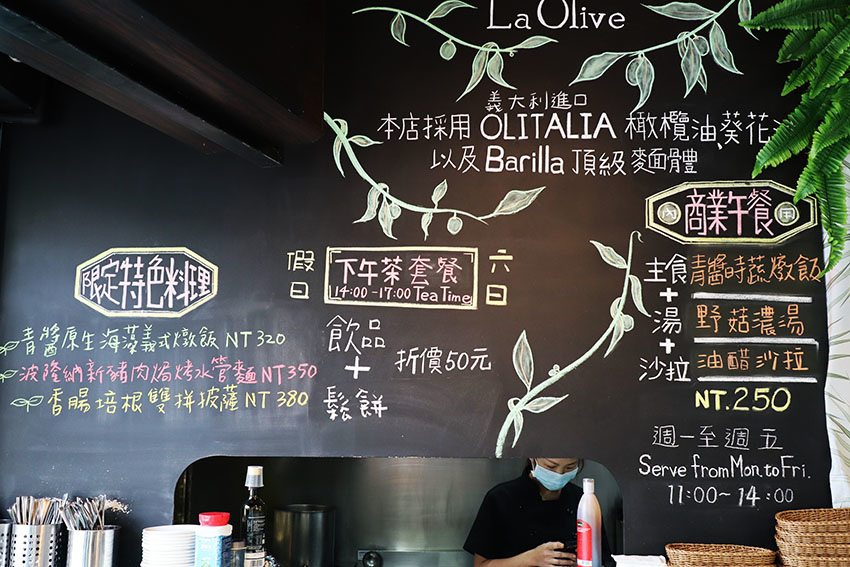 La Olive
義大利進口
本店採用 OLITALIA 橄欖油、葵花
以及 Barilla 頂級麵體
限定特色料理
青醬原生海藻義式燉飯 NT 320
波隆納新豬肉焗烤水管麵 NT 350
香腸培根雙拼披薩 NT 380
假日
下午茶套餐
14:00-17:00 Tea Time
六日
飲品
+
鬆餅
折價50元
內 商業午餐 用
主食 青醬時蔬燉飯
+
湯 野菇濃湯
+
沙拉 油醋沙拉
NT.250
週一至週五
Serve from Mon. to Fri.
11:00~14:00